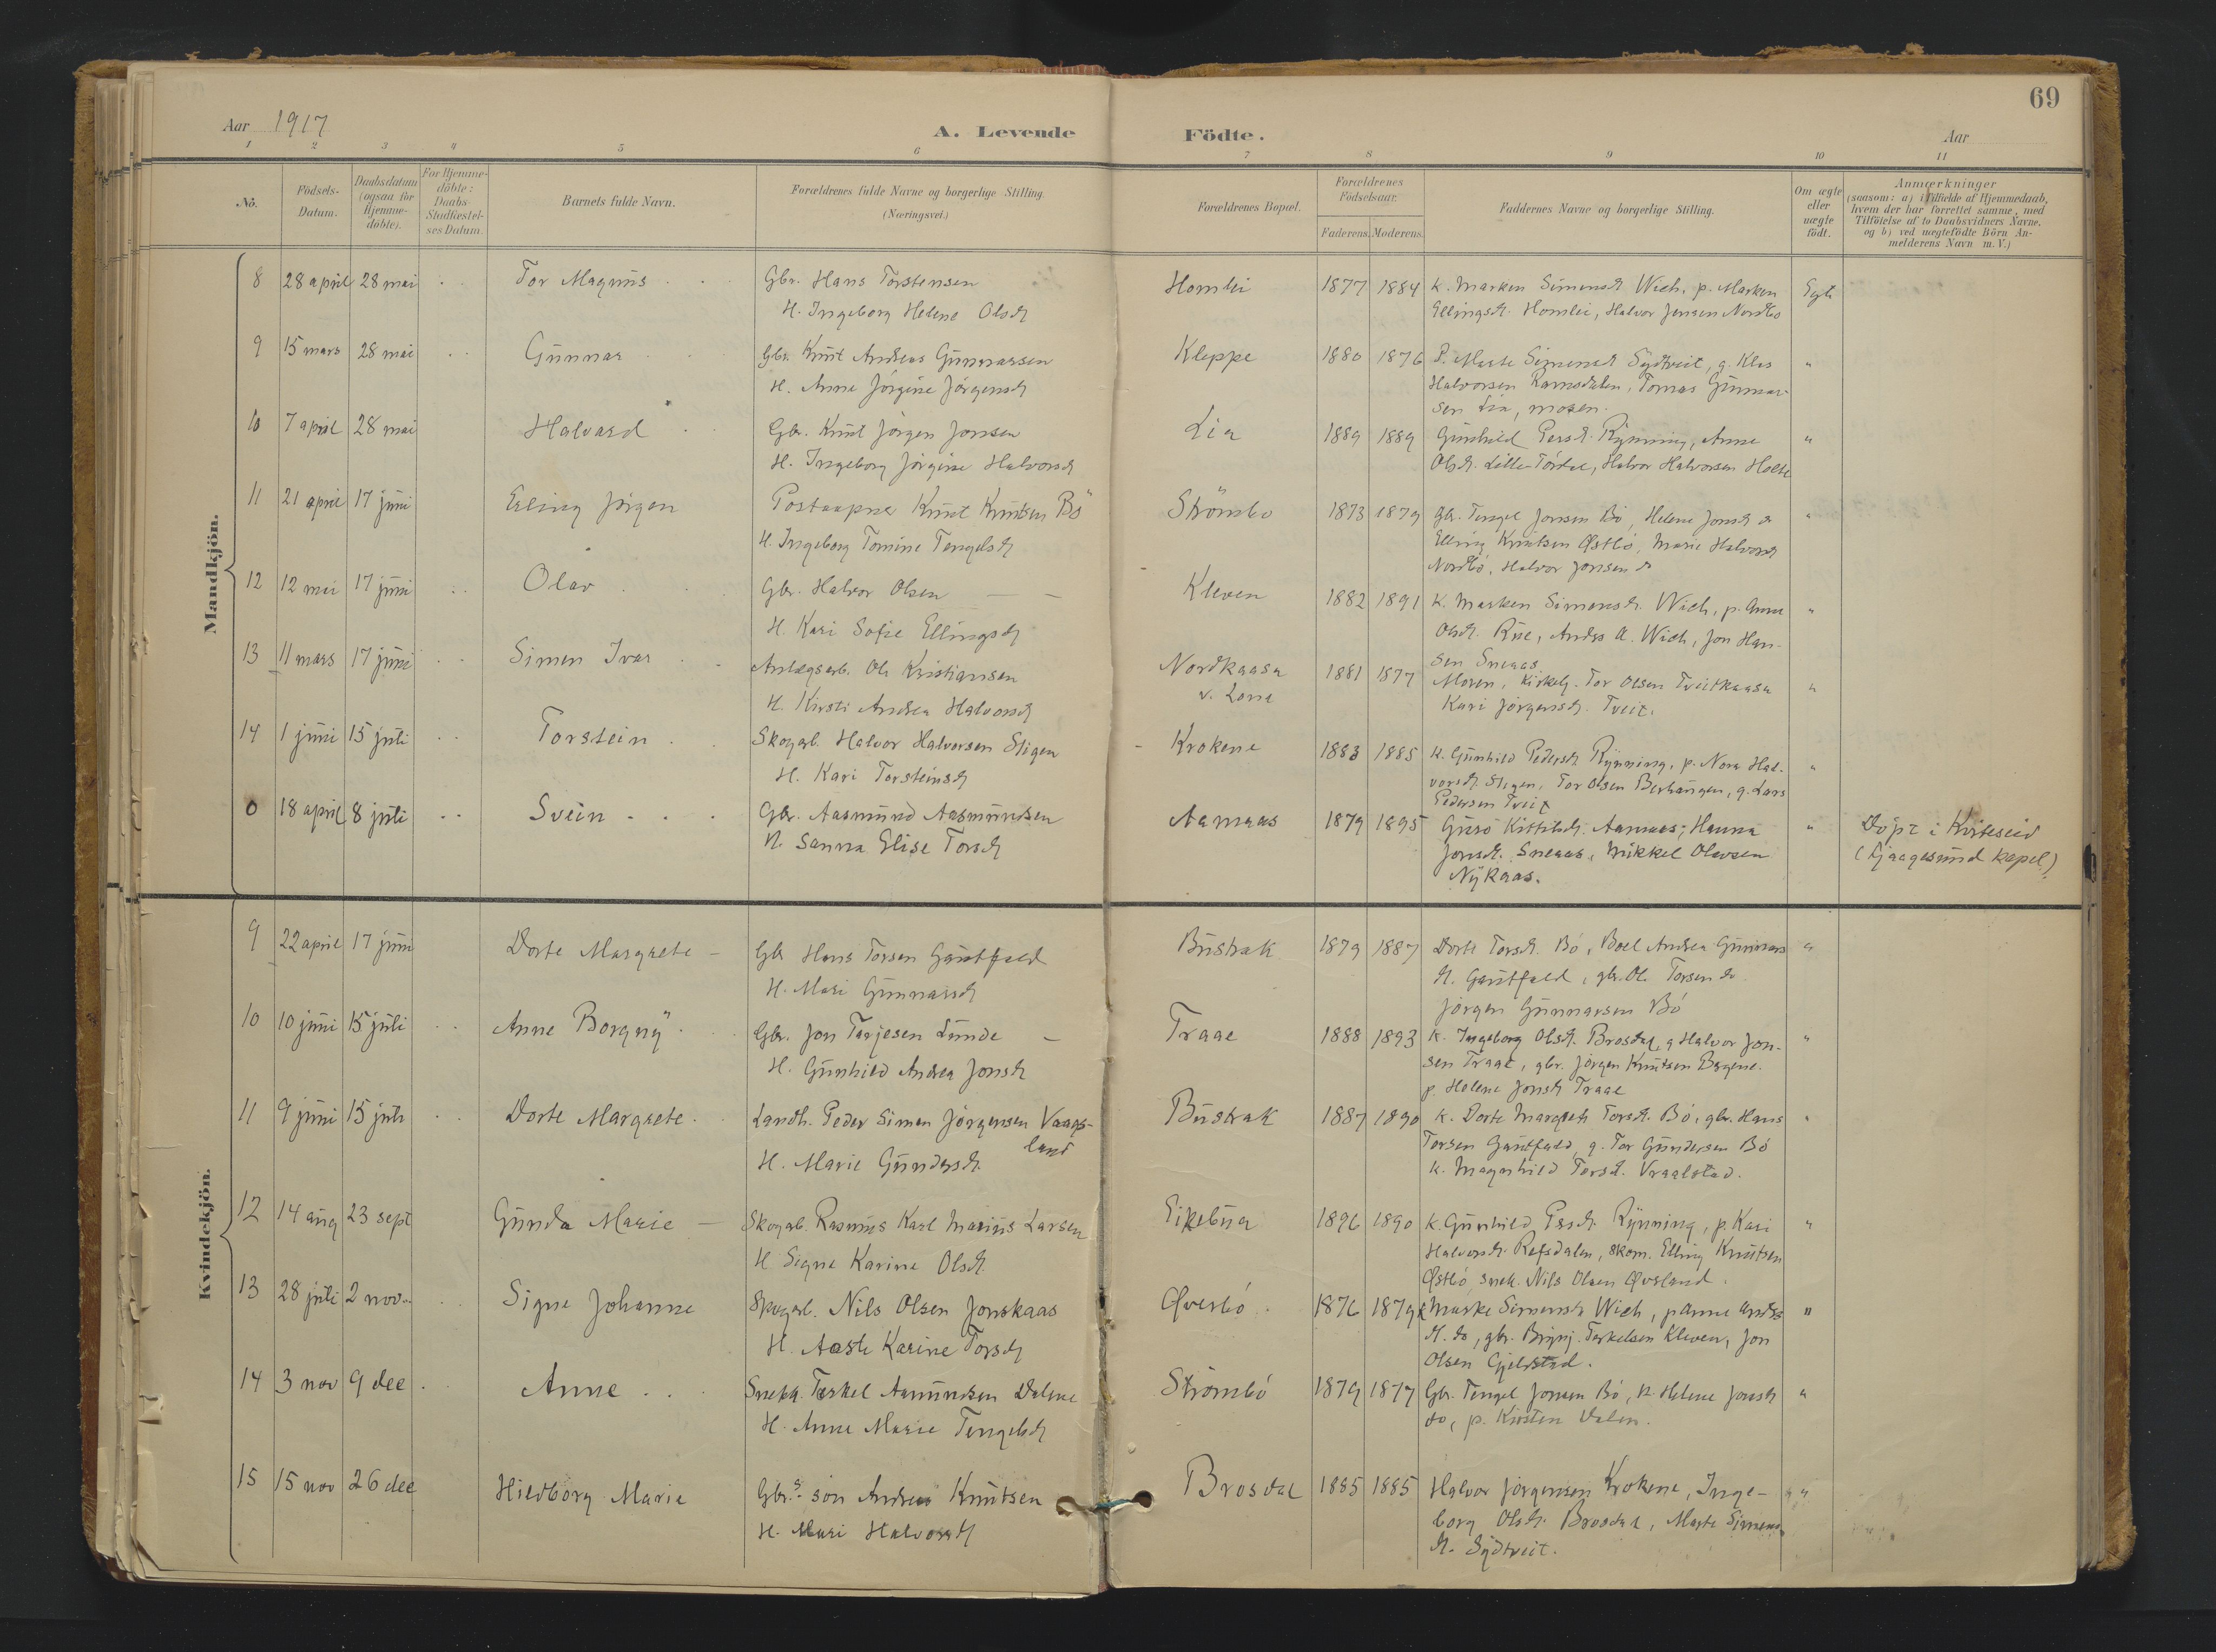 69
Aar 1917
A. Levende Födte.
Aar
1 2 3 4 5 6 7 8 9 10 11
No.
Födsels-Datum.
Daabsdatum (ogsaa for Hjemme-döbte).
For Hjemme-döbte: Daabs-Stadfæstel-ses Datum.
Barnets fulde Navn.
Forældrenes fulde Navne og borgerlige Stilling. (Næringsvei.)
Forældrenes Bopæl.
Forældrenes Födselsaar.
Faderens. Moderens.
Faddernes Navne og borgerlige Stilling.
Om ægte eller uægte födt.
Anmærkninger
(saasom: a) i Tilfælde af Hjemmedaab,
hvem der har forrettet samme, med
Tilföielse af to Daabsvidners Navne,
og b) ved uægtefödte Börn An-
melderens Navn m. V.)
Mandkjön.
8 28 april 28 mai Tor Magnus Gbr. Hans Torstensen Homlei 1877 1884 k. Marken Simensd. Wieh, p. Marken Egte
H. Ingeborg Helene Olsd. Ellingsd. Homlei, Halvor Jensen Nordbö
9 15 mars 28 mai Gunnar Gbr. Knut Andreas Gunnarsen Kleppe 1880 1876 P. Marte Simensd. Sydtveit, g. Klas "
H. Anne Jörgine Jörgensd. Halvorsen Ramsdalen, Tomas Gunnar-
sen Lia, moren.
10 7 april 28 mai Halvard Gbr. Knut Jörgen Jonsen Lia 1889 1889 Gunhild Persd. Rynning, Anne "
H. Ingeborg Jörgine Halvorsd. Olsd. Lille-Tördal, Halvor Halvorsen Holte
11 21 april 17 juni Erling Jörgen Postaapner Knut Knutsen Bö Strömbo 1873 1879 Gbr. Tengel Jonsen Bö, Helene Jonsd. do "
H. Ingeborg Tomine Tengelsd. Elling Knutsen Östbö, Marie Halvorsd.
Nordbö, Halvor Jonsen do
12 12 mai 17 juni Olav Gbr. Halvor Olsen Kleven 1882 1891 k. Marken Simensd. Wieh, p. Anne "
H. Kari Sofie Ellingsd. Olsd. Rise, Anders A. Wieh, Jon Han-
sen Sneaas
13 11 mars 17 juni Simen Ivar Anlægsarb. Ole Kristiansen Nordkaasa 1881 1877 Moren, kirkelg. Tor Olsen Tveitkaasa "
H. Kirsti Andrea Halvorsd. v. Lona Kari Jörgensd. Tveit.
14 1 juni 15 juli Torstein Skogarb. Halvor Halvorsen Stigen Krokene 1883 1885 k. Gunhild Pedersd. Rynning, p. Nora Hal- "
H. Kari Torsteinsd. vorsd. Stigen, Tor Olsen Berhaugen, g. Lars
Pedersen Tveit
0 18 april 8 juli Svein Gbr. Aasmund Aasmundsen Aamaas 1879 1895 Guro Kittilsd. Aamaas, Hanna " Döpt i Kviteseid
H. Sanna Elise Torsd. Jonsd. Sneaas, Mikkel Olavsen (Fjaagesund kapel)
Nykaas.
Kvindekjön.
9 22 april 17 juni Dorte Margrete Gbr Hans Torsen Gautfald Bustrak 1879 1887 Dorte Torsd. Bö, Boel Andrea Gunnars "
H. Mari Gunnarsd. d. Gautfald, gbr. Ol. Torsen do
Jörgen Gunnarsen Bö
10 10 juni 15 juli Anne Borgny Gbr. Jon Tarjesen Lunde Traae 1888 1893 k. Ingeborg Olsd. Brosdal, g Halvor Jon- "
H. Gunhild Andrea Jonsd. sen Traae, gbr. Jörgen Knutsen Bergene.
p. Helene Jonsd. Traae
11 9 juni 15 juli Dorte Margrete Landh. Peder Simen Jörgensen Vraals- Bustrak 1887 1890 k. Dorte Margrete Torsd. Bö, gbr. Hans "
land
H. Marie Gundersd. Torsen Gautfald, g. Tor Gundersen Bö
k. Magnhild Torsd. Vraalstad.
12 14 aug 23 sept Gunda Marie Skogarb. Rasmus Karl Marius Larsen Eikebua 1896 1890 k. Gunhild Persd. Rynning, p. Kari "
H Signe Karine Olsd. Halvorsd. Refsdalen, skom. Elling Knutsen
Østbö, snek. Nils Olsen Øvsland.
13 28 juli 2 nov. Signe Johanne Skogarb. Nils Olsen Jonskaas Øvesbö 1876 1879 k Marke Simensd. Wieh, p Anne Anders "
H. Aaste Karine Torsd. d. do, gbr. Brynj. Terkelsen Kleven, Jon
Olsen Gjelstad.
14 3 nov 9 dec Anne Snekk. Terkel Aamundsen Dalene Strömbö 1879 1877 Gbr. Tengel Jonsen Bö, k. Helene Jonsd. "
H. Anne Marie Tengelsd. do, p. Kirsten Dalen.
15 15 nov 26 dec Hildborg Marie Gbr.s sön Andreas Knutsen Brosdal 1885 1885 Halvor Jörgensen Krokene, Inge- "
H. Mari Halvorsd. borg Olsd. Brosdal, Marte Simens
d. Sydtveit.